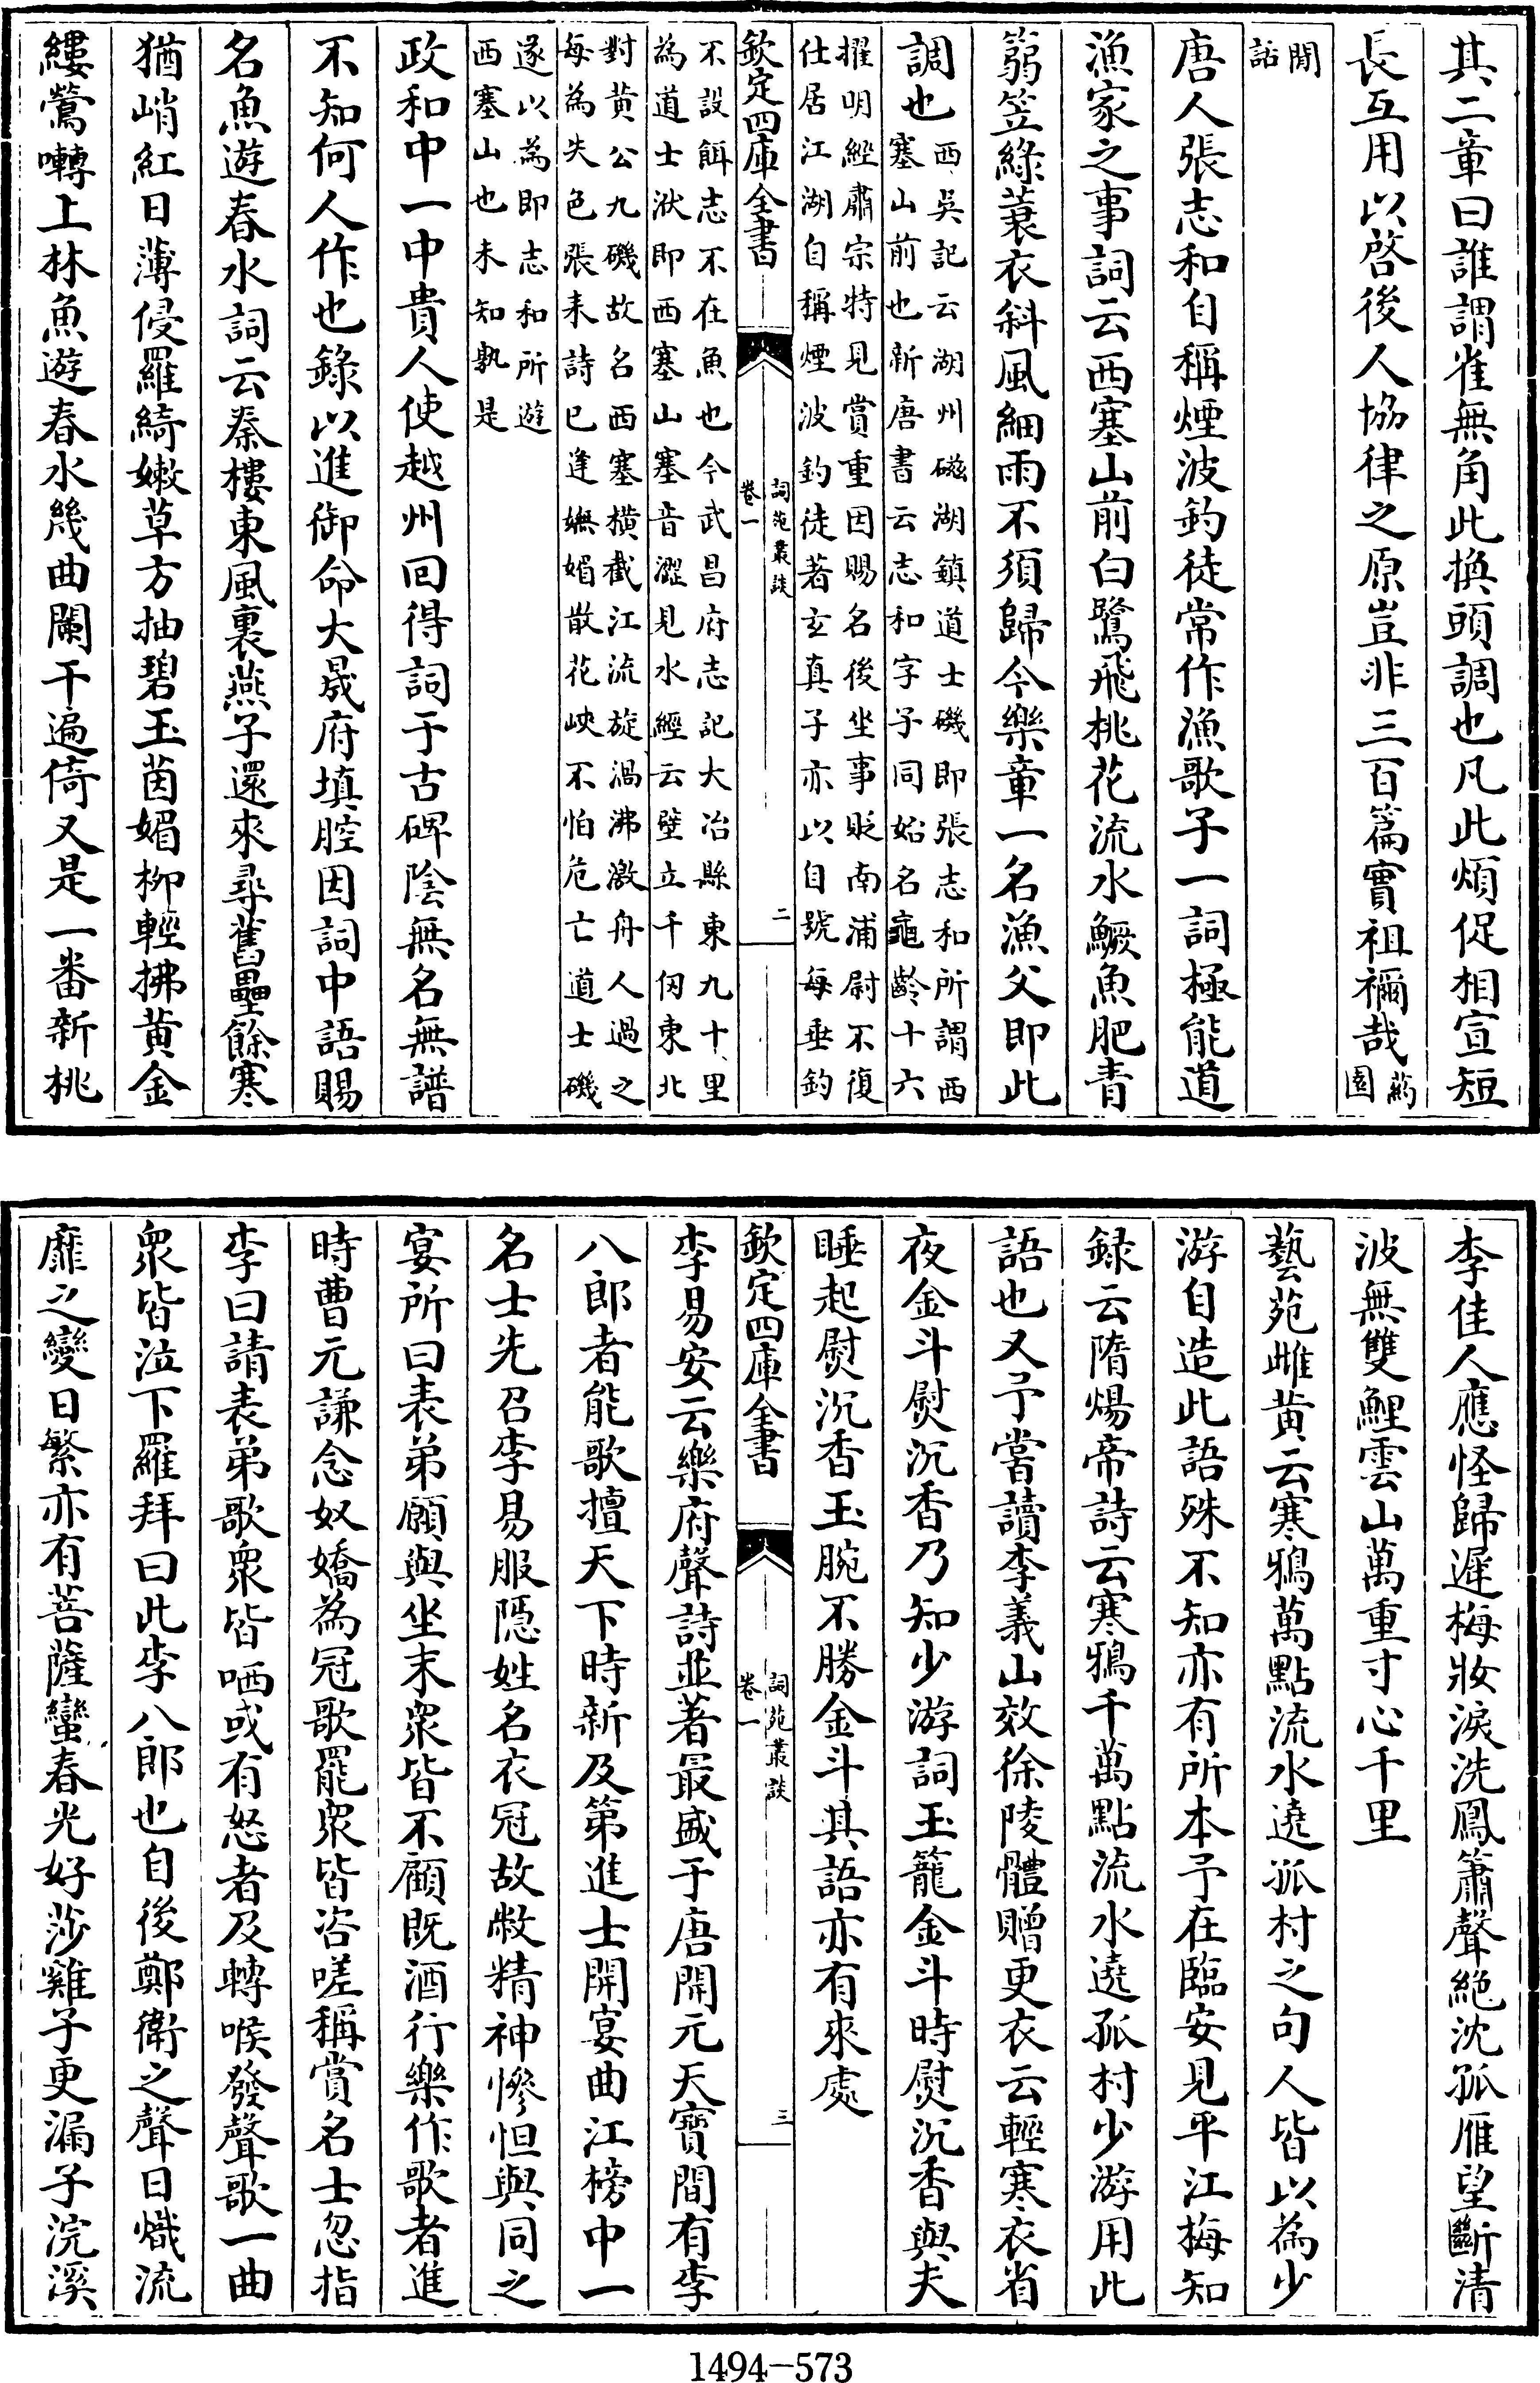 其二章曰誰謂雀無角此換頭調也凡此煩促相宣短
長互用以啓後人協律之原豈非三百篇實祖禰哉藥園
閒話
唐人張志和自稱煙波釣徒常作漁歌子一詞極能道
漁家之事詞云西塞山前白鷺飛桃花流水鱖魚肥青
篛笠綠蓑衣斜風細雨不須歸今樂章一名漁父即此
調也西吳記云湖州磁湖鎮道士磯即張志和所謂西
塞山前也新唐書云志和字子同始名龜齡十六
擢明經肅宗特見賞重因賜名後坐事貶南浦尉不復
仕居江湖自稱煙波釣徒著玄真子亦以自號每垂釣
欽定四庫全書
詞苑叢談
卷一
二
不設餌志不在魚也今武昌府志記大冶縣東九十里
為道士洑即西塞山塞音澀見水經云壁立千仞東北
對黃公九磯故名西塞橫截江流旋渦沸激舟人過之
每為失色張耒詩已逢嫵媚散花峽不怕危亡道士磯
遂以為即志和所遊
西塞山也未知孰是
政和中一中貴人使越州回得詞于古碑陰無名無譜
不知何人作也錄以進御命大晟府填腔因詞中語賜
名魚遊春水詞云秦樓東風裏燕子還來尋舊壘餘寒
猶峭紅日薄侵羅綺嫩草方抽碧玉茵媚柳輕拂黃金
縷鶯囀上林魚遊春水幾曲闌干遍倚又是一番新桃
李佳人應怪歸遲梅妝淚洗鳳簫聲絕沈孤雁望斷清
波無雙鯉雲山萬重寸心千里
藝苑雌黃云寒鴉萬點流水遶孤村之句人皆以為少
游自造此語殊不知亦有所本予在臨安見平江梅知
録云隋煬帝詩云寒鴉千萬點流水遶孤村少游用此
語也又予嘗讀李義山效徐陵體贈更衣云輕寒衣省
夜金斗熨沉香乃知少游詞玉籠金斗時熨沉香與夫
睡起熨沉香玉腕不勝金斗其語亦有來處
欽定四庫全書
詞苑叢談
卷一
三
李易安云樂府聲詩並著最盛于唐開元天寶間有李
八郎者能歌擅天下時新及第進士開宴曲江榜中一
名士先召李易服隱姓名衣冠故敝精神慘怛與同之
宴所曰表弟願與坐末衆皆不顧既酒行樂作歌者進
時曹元謙念奴嬌為冠歌罷衆皆咨嗟稱賞名士忽指
李曰請表弟歌衆皆哂或有怒者及轉喉發聲歌一曲
衆皆泣下羅拜曰此李八郎也自後鄭衛之聲日熾流
靡之變日繁亦有菩薩蠻春光好莎雞子更漏子浣溪
1494-573